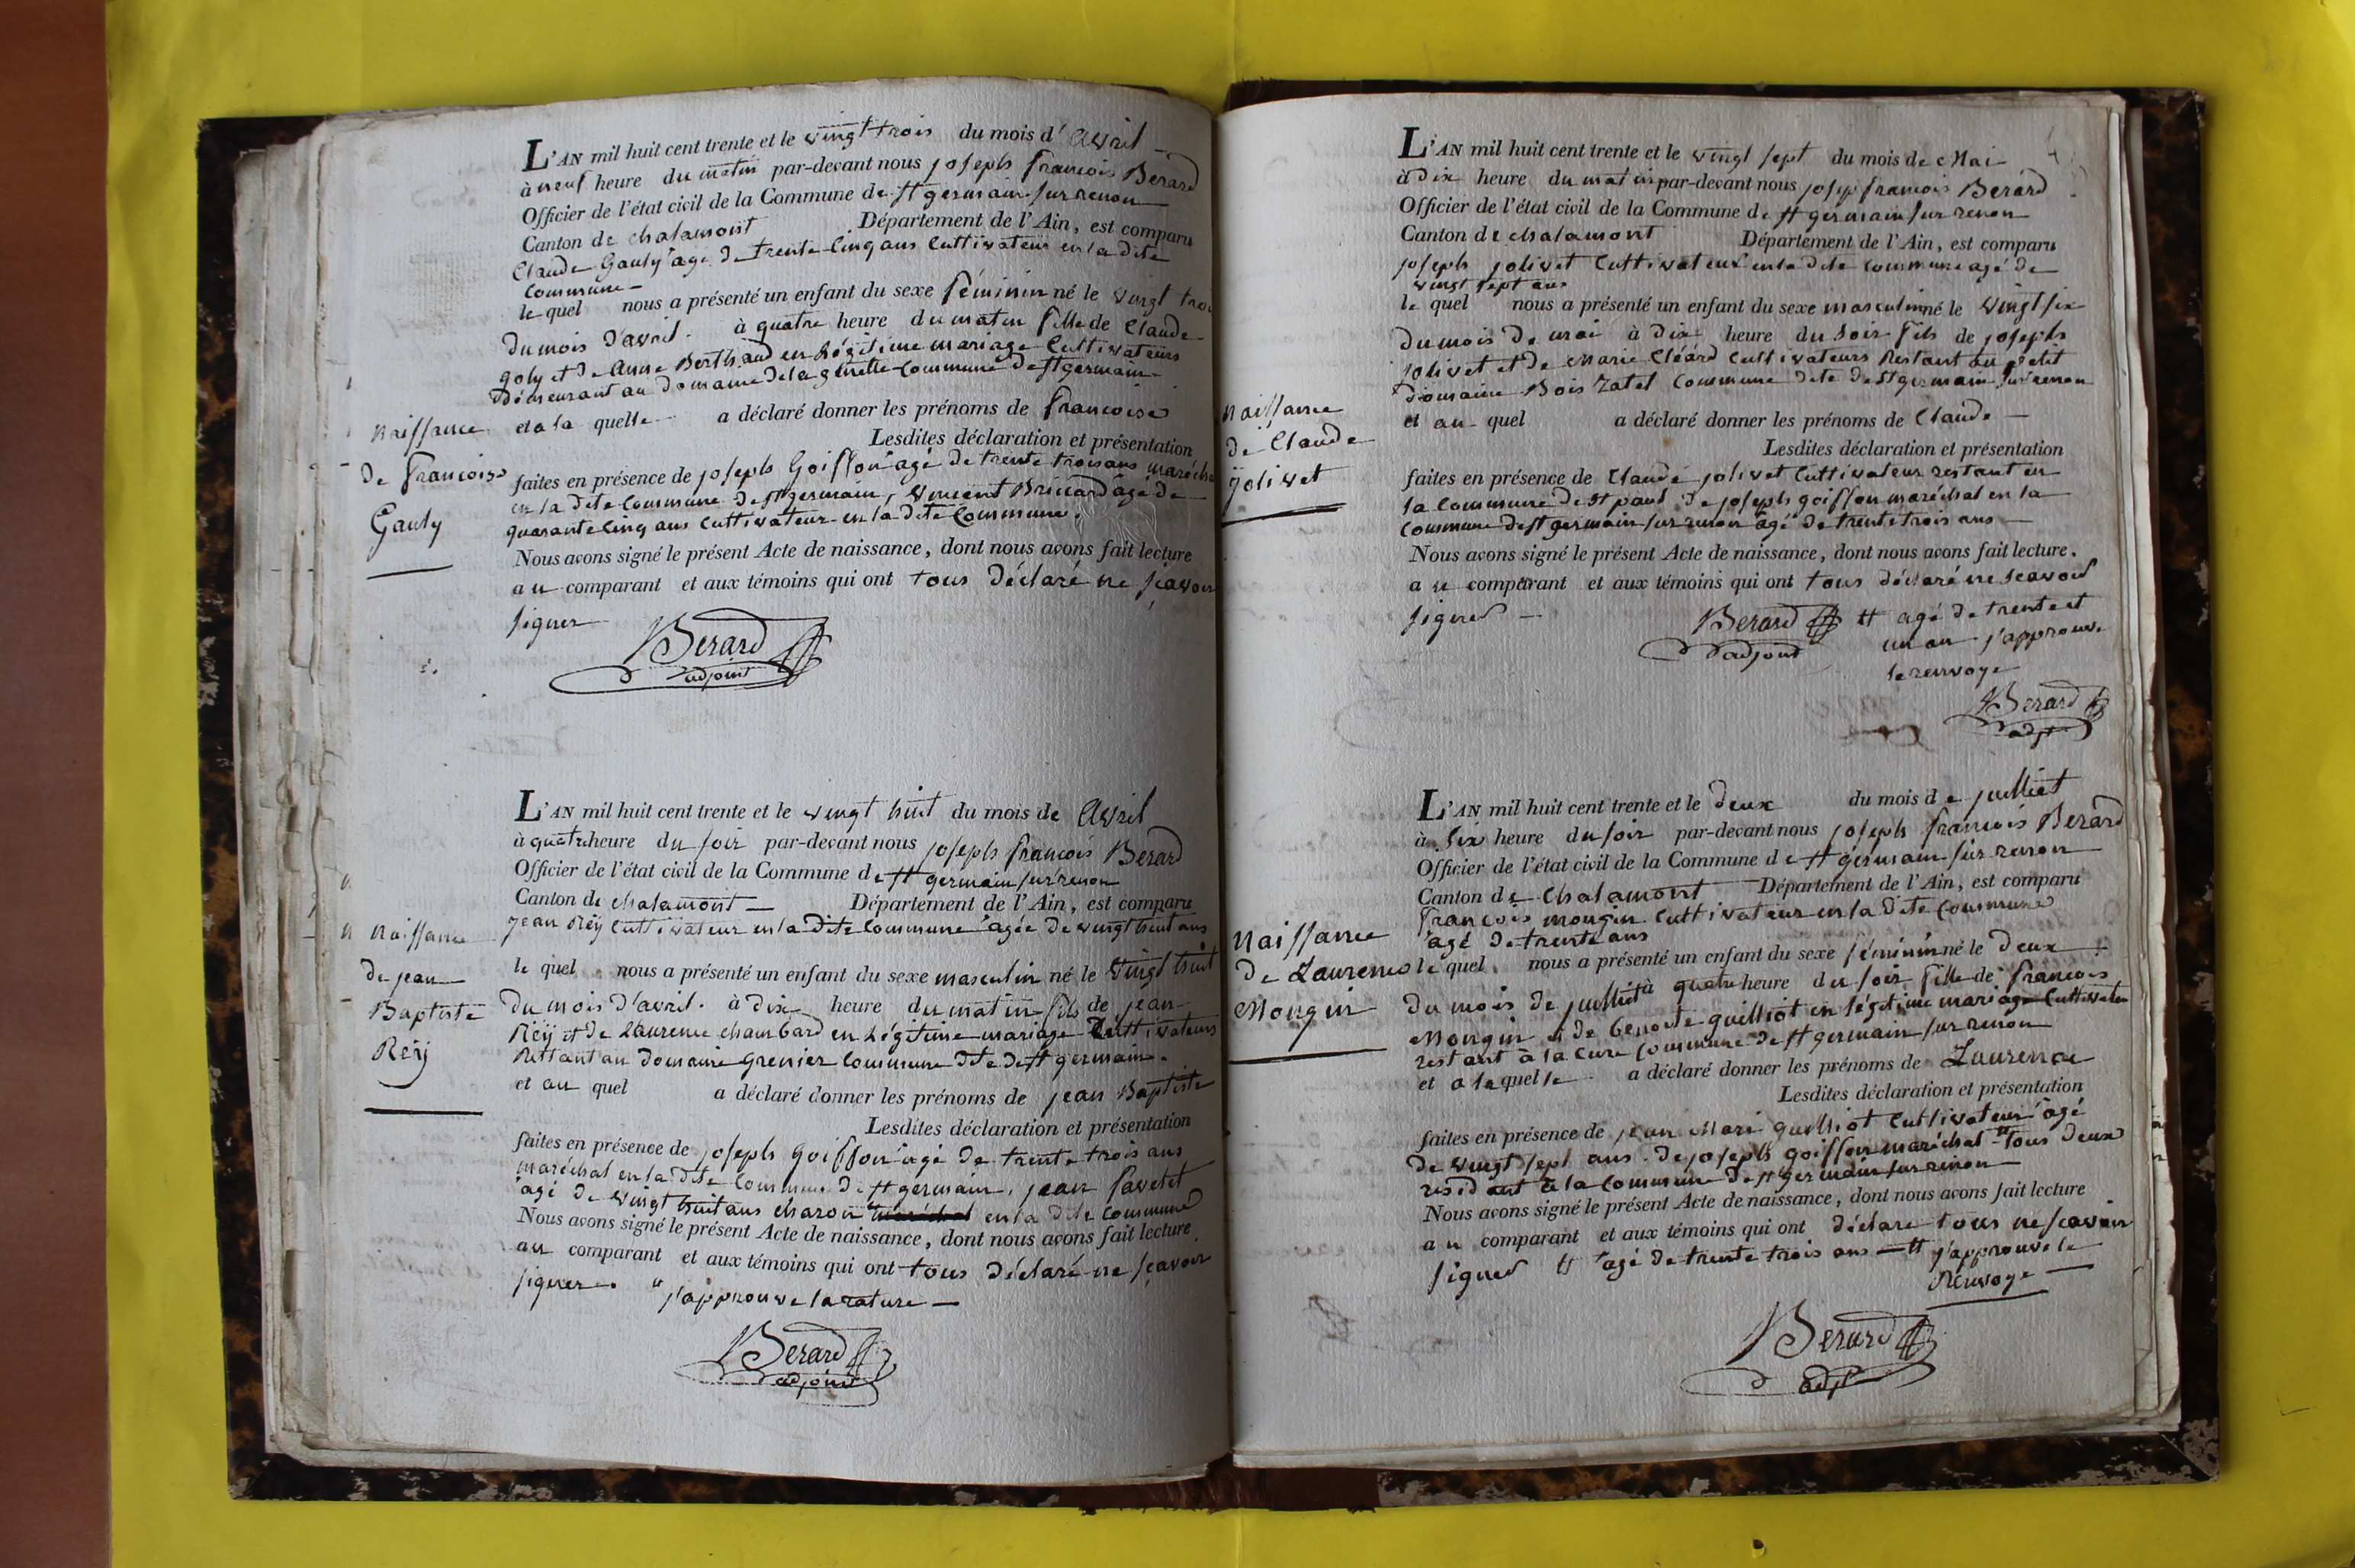 L'AN mil huit cent trente et le vingt trois du mois d'avril
à neuf heure du matin par-devant nous joseph francois Berard
Officier de l'état civil de la Commune de st germain sur renon
Canton de chalamont Département de l'Ain, est comparu
Claude Gauly agé de trente cinq ans Cultivateur en la dite
Commune
le quel nous a présenté un enfant du sexe féminin né le vingt trois
du mois d'avril à quatre heure du matin fille de Claude
goly et de Anne Berthaud en légitime mariage Cultivateurs
démeurant au domaine de la commune de st germain
et a la quelle a déclaré donner les prénoms de francoise
Lesdites déclaration et présentation
faites en présence de joseph Goiffon agé de trente trois ans maréchal
en la dite Commune de st germain, vincent Briccard agé de
quarante cinq ans cultivateur en la dite Commune.
Nous avons signé le présent Acte de naissance, dont nous avons fait lecture
au comparant et aux témoins qui ont tous déclaré ne scavoir
signer
Berard
adjoint
Naissance
de francoise
Gauly
L'AN mil huit cent trente et le vingt huit du mois de avril
à quatre heure du soir par-devant nous joseph francois Berard
Officier de l'état civil de la Commune de st germain sur renon
Canton de chalamont Département de l'Ain, est comparu
jean Reÿ cultivateur en la dite Commune agée de vingt huit ans
le quel nous a présenté un enfant du sexe masculin né le vingt huit
du mois d'avril à dix heure du matin fils de jean
Reÿ et de Laurence chambard en légitime mariage Cultivateurs
restant au domaine Grenier Commune dite de st germain
et au quel a déclaré donner les prénoms de jean Baptiste
Lesdites déclaration et présentation
faites en présence de joseph Goiffon agé de trente trois ans
maréchal en la dite Commune de st germain, jean
agé de vingt huit ans charon maréchal en la dite Commune
Nous avons signé le présent Acte de naissance, dont nous avons fait lecture
au comparant et aux témoins qui ont tous déclaré ne scavoir
signer. j'approuve la rature
Berard
adjoint
Naissance
de jean
Baptiste
Reÿ
L'AN mil huit cent trente et le vingt sept du mois de Mai
à dix heure du matin par-devant nous josep francois Berard
Officier de l'état civil de la Commune de st germain sur renon
Canton de chalamont Département de l'Ain, est comparu
joseph jolivet Cultivateur en la dite Commune agé de
vingt sept ans
le quel nous a présenté un enfant du sexe masculin né le vingt six
du mois de mai à dix heure du soir fils de joseph
jolivet et de Marie Cléard Cultivateurs restant au petit
Domaine Bois Ratel Commune dite de st germain sur renon
et au quel a déclaré donner les prénoms de Claude
Lesdites déclaration et présentation
faites en présence de Claude jolivet Cultivateur restant en
la Commune de st paul de joseph goiffon maréchal en la
commune de st germain sur renon agé de trente trois ans
Nous avons signé le présent Acte de naissance, dont nous avons fait lecture.
au comparant et aux témoins qui ont tous déclaré ne scavoir
signer
Berard
adjoint
agé de trente et
un an j'approuve
le renvoye
Berard
adjt
Naissance
de Claude
jolivet
L'AN mil huit cent trente et le deux du mois de juilliet
à six heure du soir par-devant nous joseph francois Berard
Officier de l'état civil de la Commune de st germain sur renon
Canton de Chalamont Département de l'Ain, est comparu
francois mongin Cultivateur en la dite Commune
agé de trente ans
le quel nous a présenté un enfant du sexe féminin né le deux
du mois de juilliet à quatre heure du soir fille de francois
Mongin et de Benoite guilliot en légitime mariage Cultivateur
restant à la cure Commune de st germain sur renon
et a la quelle a déclaré donner les prénoms de Laurence
Lesdites déclaration et présentation
faites en présence de jean Mari guilliot Cultivateur agé
de vingt sept ans de joseph goiffon maréchal tous deux
residant à la Commune de st germain sur renon
Nous avons signé le présent Acte de naissance, dont nous avons fait lecture
au comparant et aux témoins qui ont déclaré tous ne scavoir
signer agé de trente trois ans j'approuve le
Renvoye
Berard
adjt
Naissance
de Laurence
Mongin